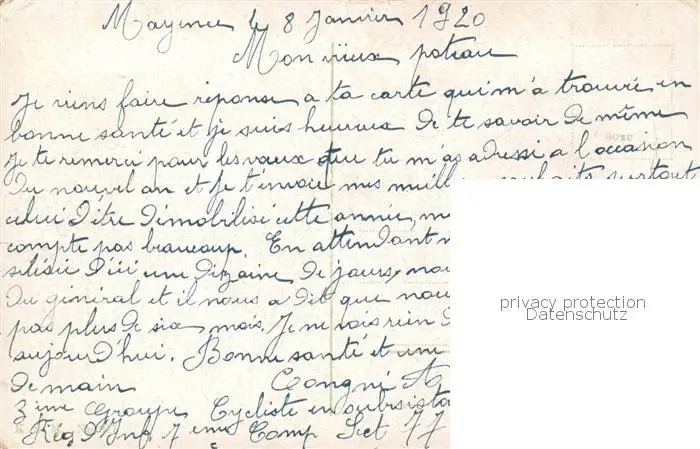 Mayence le 8 Janvier 1920
Mon vieux poteau
Je viens faire réponse a ta carte qui m'a trouvé en
bonne santé et je suis heureux de te savoir de même
Je te remerci pour les vœux que tu m'as adressé a l'occasion
du nouvel an et je t'envoie mes meill souhaits surtout
celui d'être démobilisé cette année, m
compte pas beaucoup. En attendant n
d'ici une dizaine de jours, nou
du général et il nous a dit que nou
pas plus de six mois. Je ne vois rien d
aujourd'hui. Bonne santé et une
de main Congné A
3ème Groupe Cycliste en subsista
Reg d'Inf 7 eme Comp Sect 77
privacy protection
Datenschutz